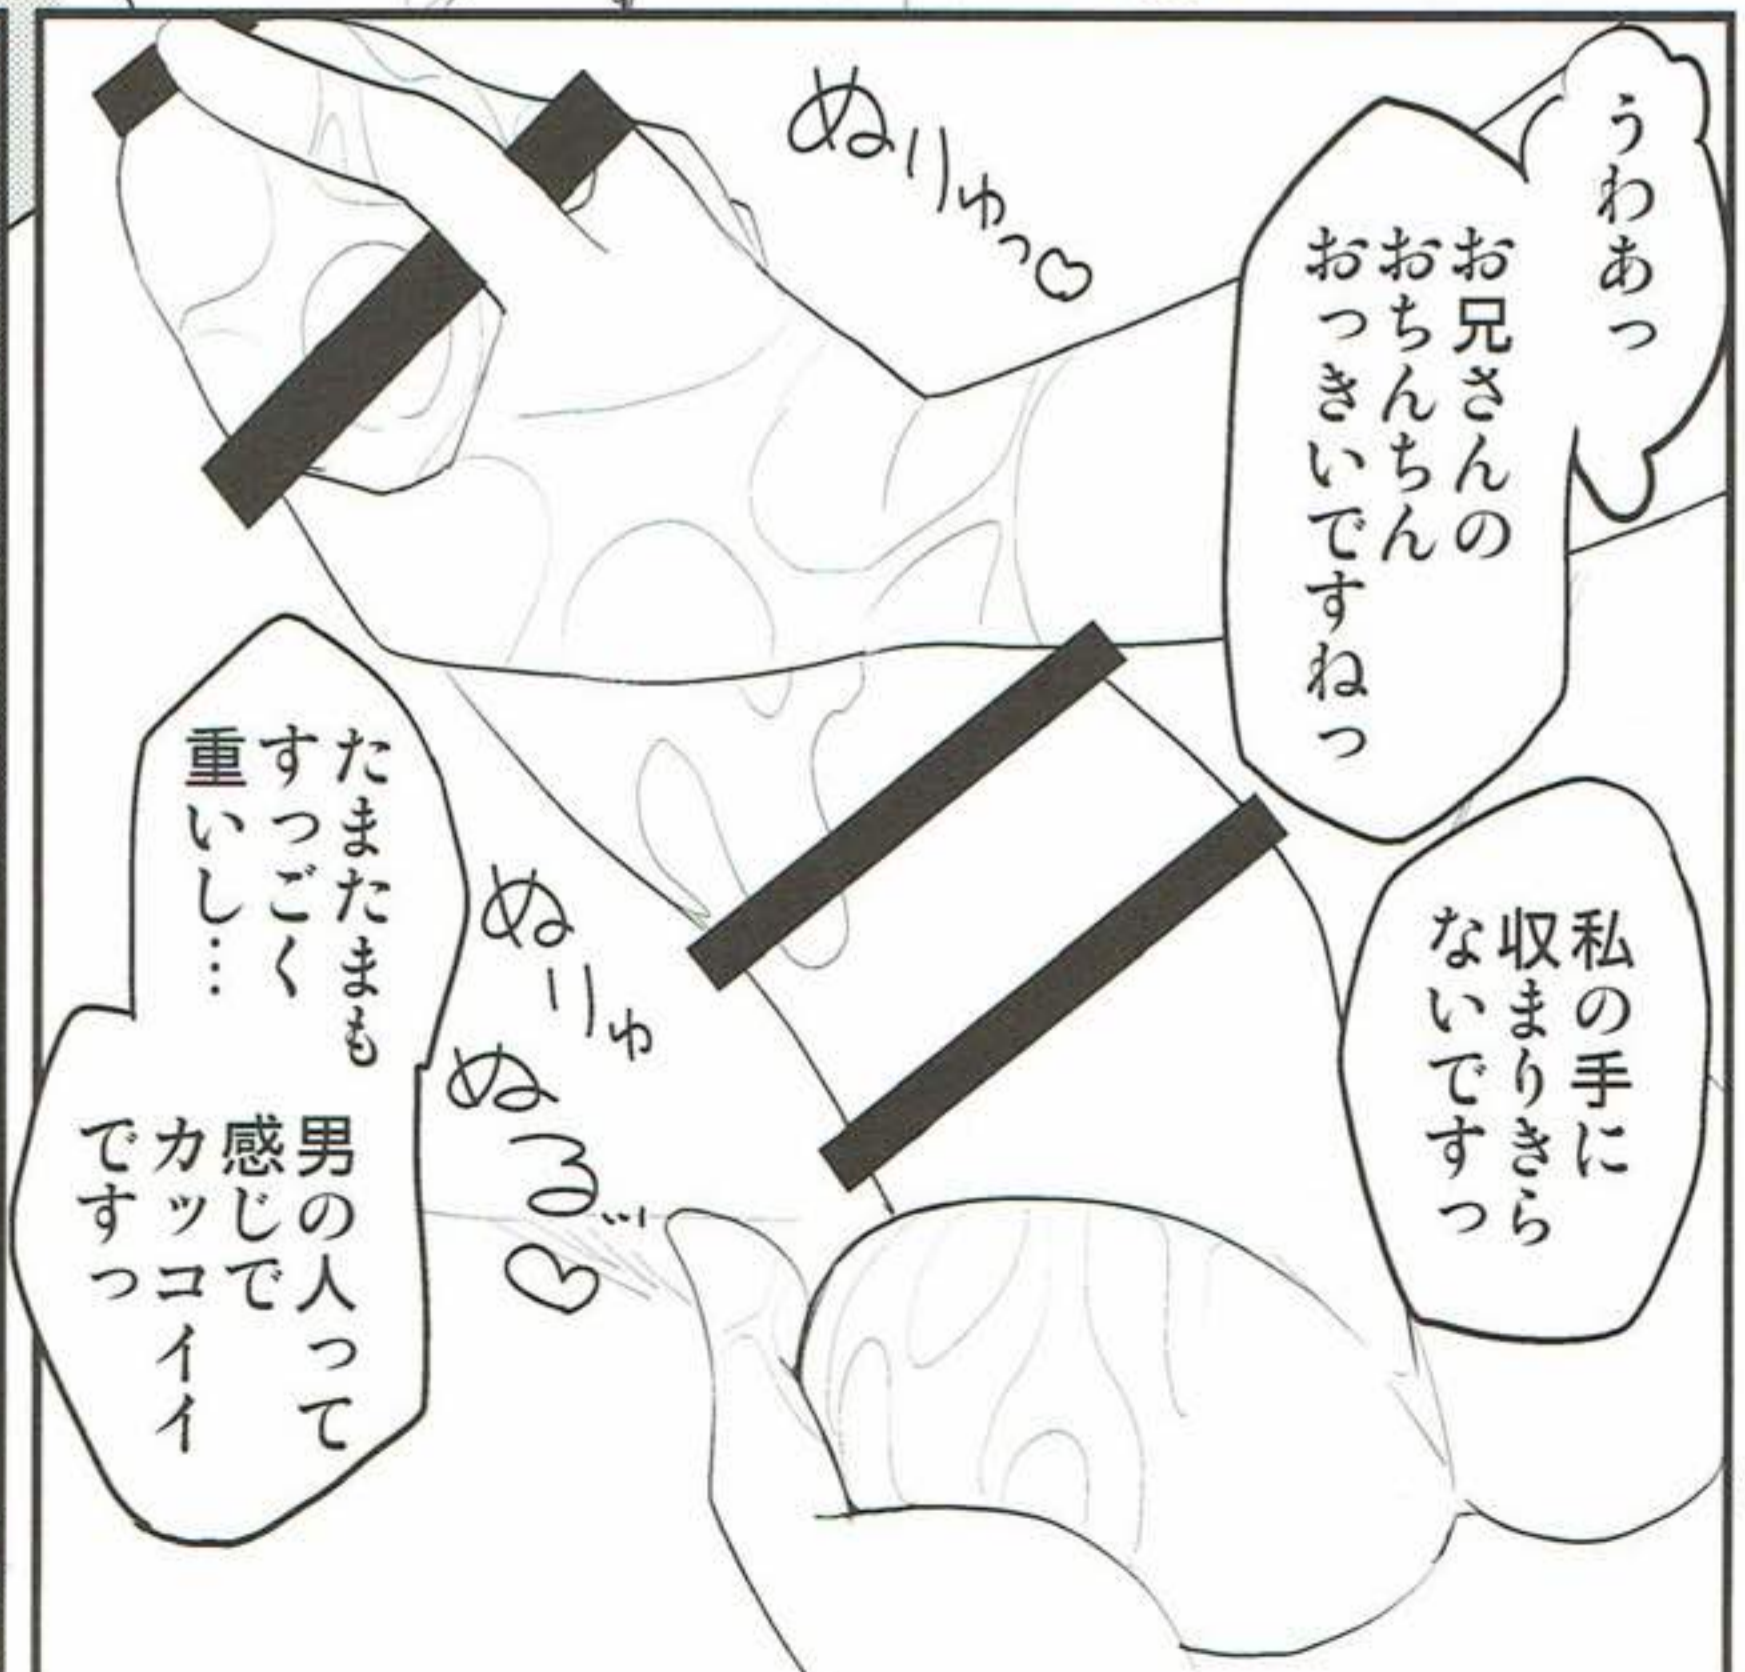 うわあっ
お兄さんの
おちんちん
おっきいですねっ
ぬりゅっ♡
私の手に
収まりきら
ないですっ
たまたまも
すっごく
重いし…
男の人って
感じで
カッコイイ
ですっ
ぬりゅ
ぬる…♡